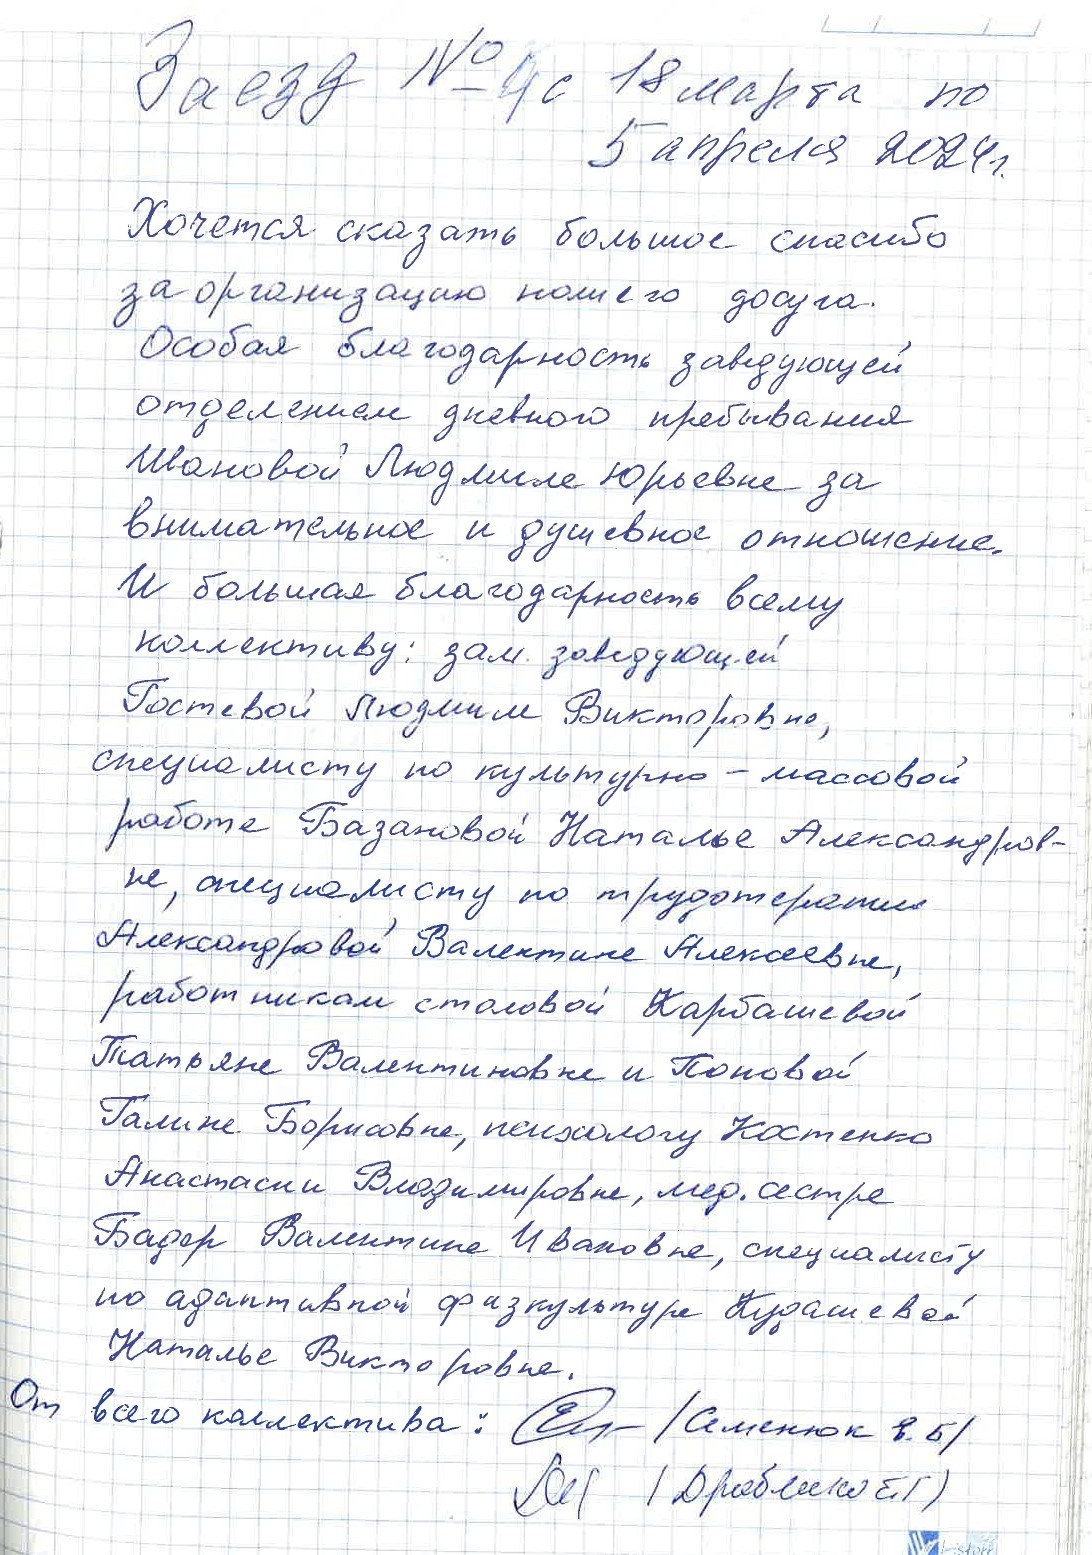 Заезд № 4 с 18 марта по
5 апреля 2024г.
Хочется сказать большое спасибо
за организацию нашего досуга.
Особая благодарность заведующей
отделением дневного пребывания
Ивановой Людмиле Юрьевне за
внимательное и душевное отношение.
И большая благодарность всему
коллективу: зам. заведующей
Гостевой Людмиле Викторовне,
специалисту по культурно - массовой
работе Базановой Наталье Александров-
не, специалисту по трудотерапии
Александровой Валентине Алексеевне,
работникам столовой Карбашевой
Татьяне Валентиновне и Поповой
Галине Борисовне, психологу Костенко
Анастасии Владимировне, мед. сестре
Бадер Валентине Ивановне, специалисту
по адаптивной физкультуре Кудашевой
Наталье Викторовне.
От всего коллектива: /Семенюк Е.Б/
Listoff